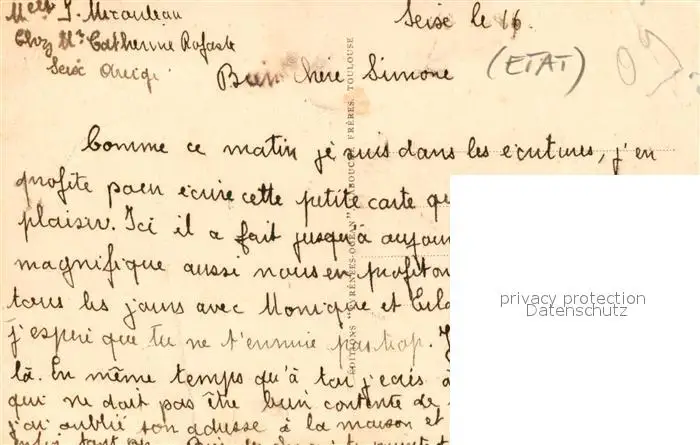 Melle J. Mirouleau
Chez Me Catherine Rofaste
Seix Ariège
Seix le 16
Bien chère Simone
(ETAT)
09
EDITIONS "PYRÉNÉES-OCÉAN" LABOUCHE FRÈRES, TOULOUSE
Comme ce matin je suis dans les écritures, j'en
profite pour écrire cette petite carte
plaisir. Ici il a fait jusqu'à
magnifique aussi nous en
tous les jours avec Monique et
j'espère que tu ne t'ennuie pas trop.
là. En même temps qu'à toi j'écris à
qui ne doit pas être bien contente de
j'ai oublié son adresse à la maison et
privacy protection
Datenschutz